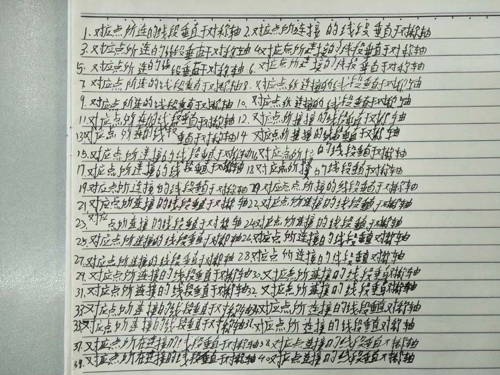 1.对应点所连的线段垂直于对称轴 2.对应点所连接的线段垂直于对称轴
3.对应点所连的线段垂直于对称轴 4.对应点所连接的线段垂直于对称轴
5.对应点所连的线段垂直于对称轴 6.对应点所连接的线段垂直于对称轴
7.对应点所连的线段垂直于对称轴 8.对应点所连接的线段垂直于对称轴
9.对应点所连的线段垂直于对称轴 10.对应点所连接的线段垂直于对称轴
11.对应点所连的线段垂直于对称轴 12.对应点所连接的线段垂直于对称轴
13.对应点所连的线段垂直于对称轴 14.对应点所连接的线段垂直于对称轴
15.对应点所连接的线段垂直于对称轴 16.对应点所 的线段垂直于对称轴
17.对应点所连接的线段垂直于对称轴 18.对应点所接的线段垂直于对称轴
19.对应点所连接的线段垂直于对称轴 对应点所连接的线段垂直于对称轴
21.对应点所连接的线段垂直于对称轴 22.对应点所连接的线段垂直于对称轴
23.对应点所连接的线段垂直于对称轴 24.对应点所连接的线段垂直于对称轴
25.对应点所连接的线段垂直于对称轴 26.对应点所连接的线段垂直于对称轴
27.对应点所连接的线段垂直于对称轴 28.对应点所连接的线段垂直于对称轴
29.对应点所连接的线段垂直于对称轴 30.对应点所连接的线段垂直对称轴
31.对应点所连接的线段垂直于对称轴 32.对应点所连接的线段垂直对称轴
33.对应点所连接的线段垂直于对称轴 34.对应点所连接的线段垂直对称轴
35.对应点所连接的线段垂直于对称轴 36.对应点所连接的线段垂直对称轴
37.对应点所在连接的线段垂直于对称轴 38.对应点所连接的线段垂直对称轴
39.对应点所在连接的线段垂直于对称轴 40.对应点连接的线段垂直对称轴